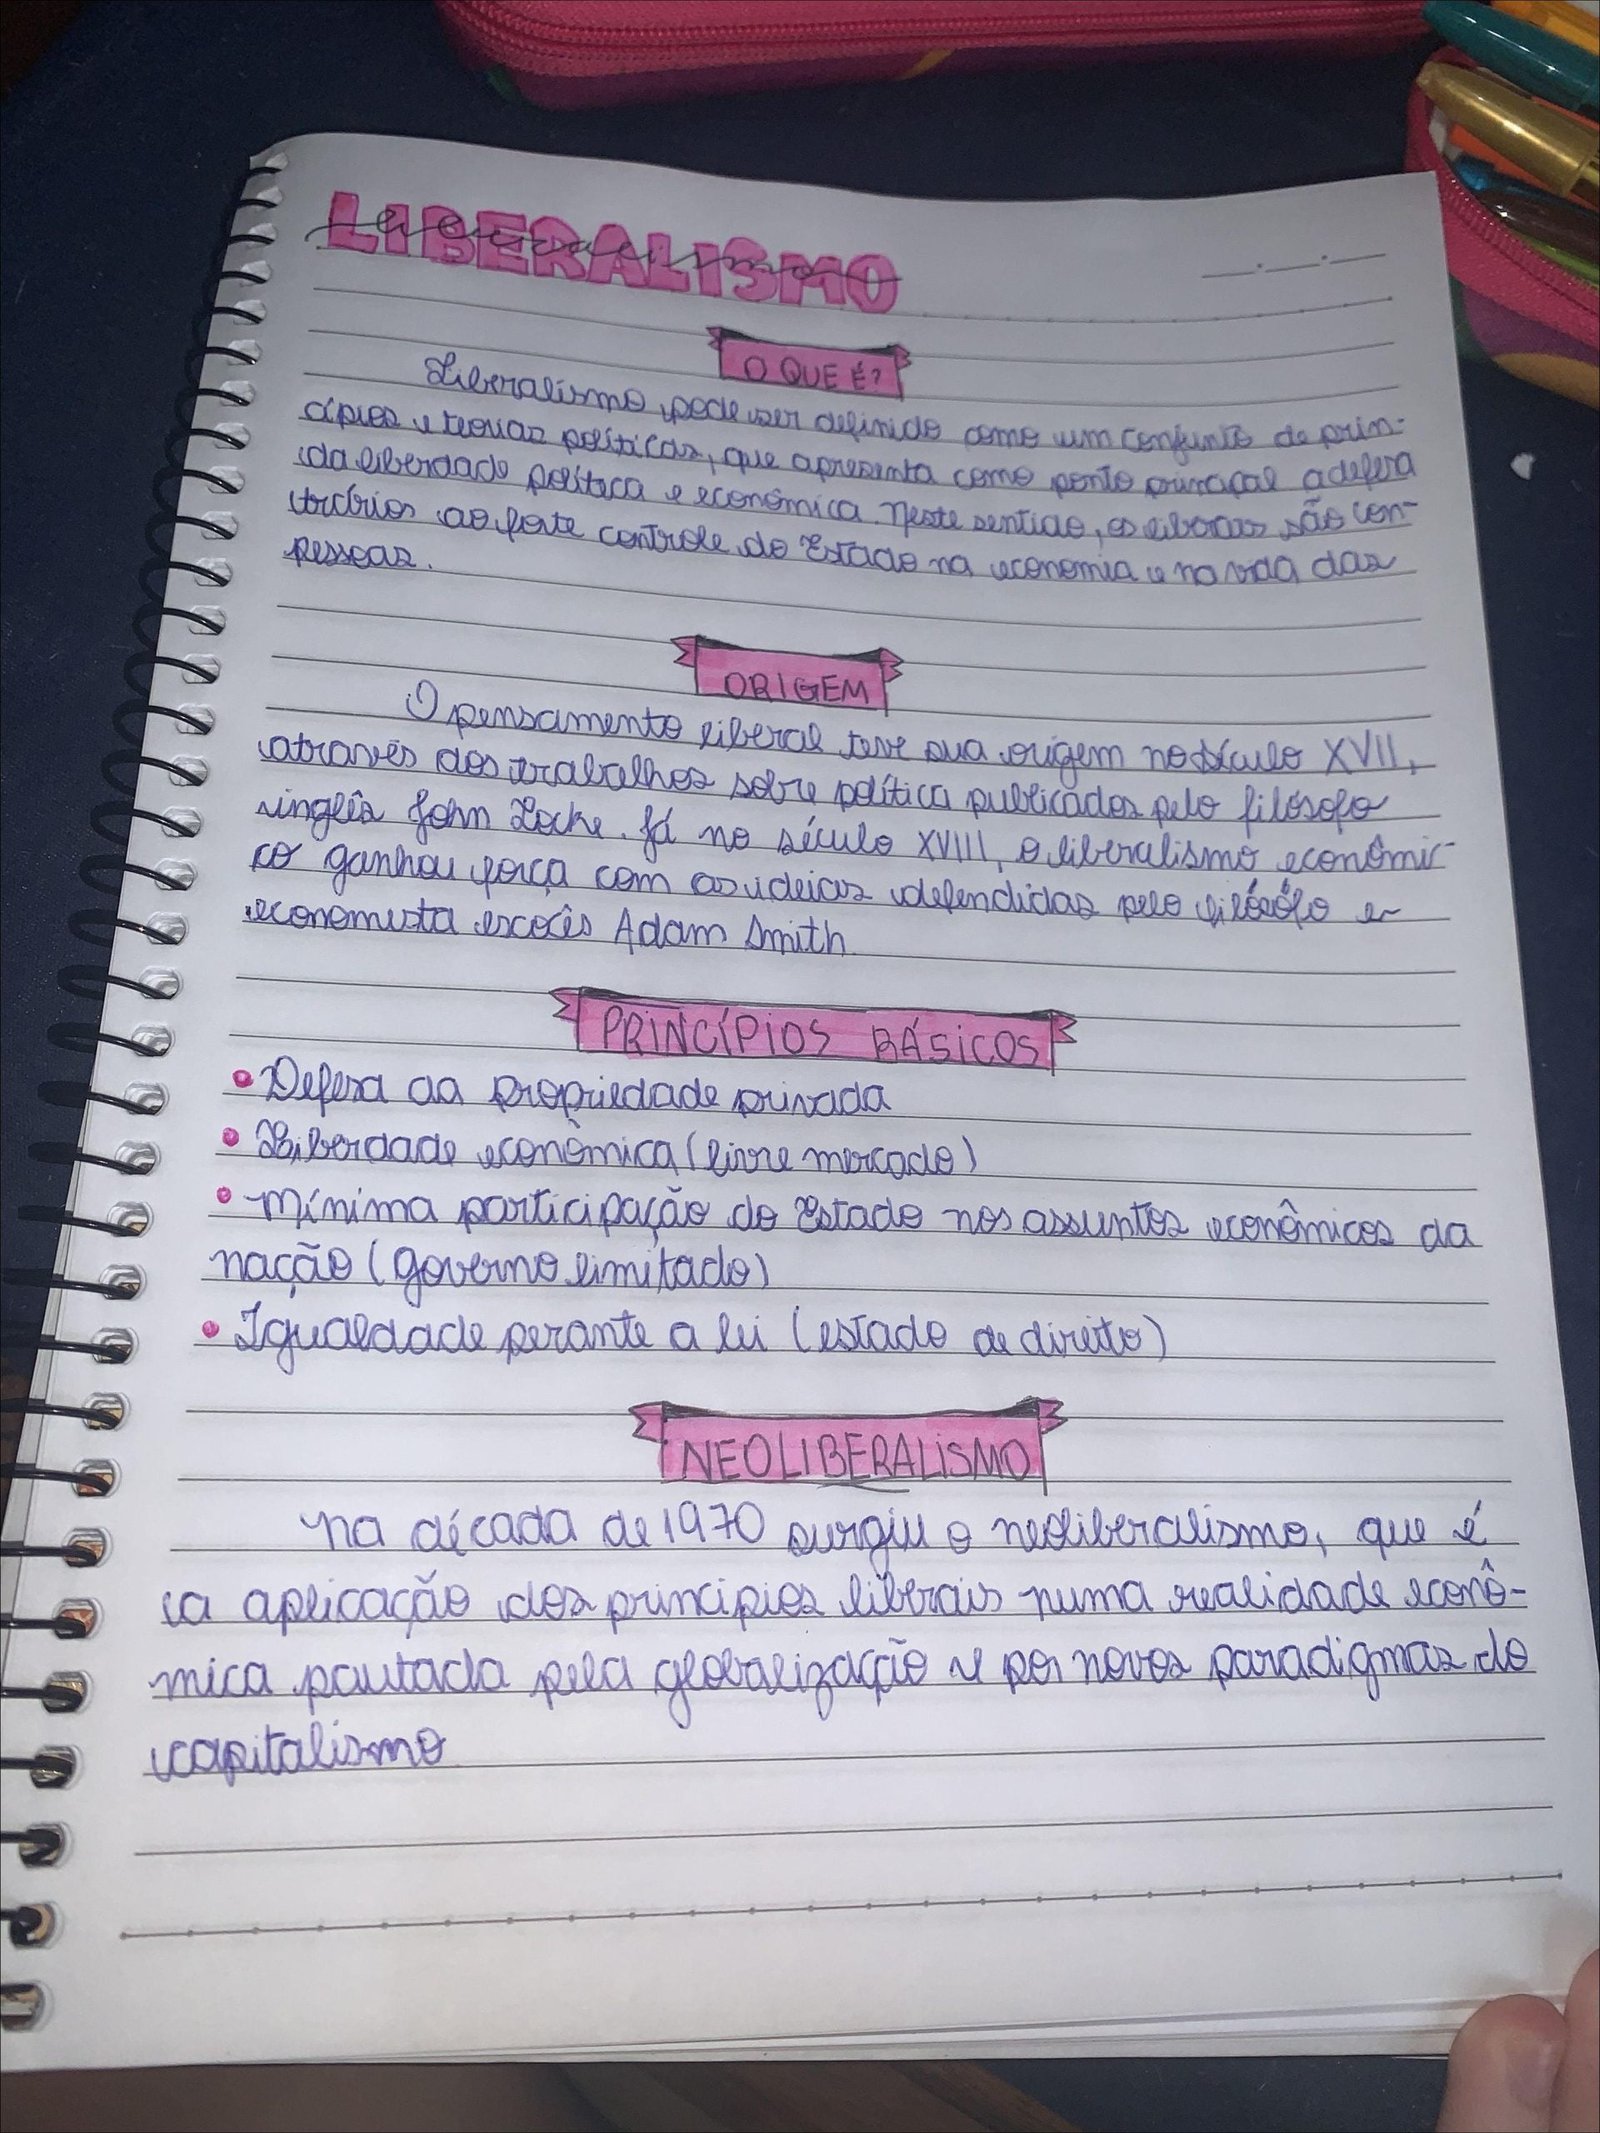 LIBERALISMO
liberalismo
O QUE É?
Liberalismo pode ser definido como um conjunto de prin-
cípios e teorias políticas, que apresenta como ponto principal a defesa
da liberdade política e econômica. Neste sentido, os liberais são con-
trários ao forte controle do Estado na economia e na vida das
pessoas.
ORIGEM
O pensamento liberal teve sua origem no século XVII,
através dos trabalhos sobre política publicados pelo filósofo
inglês John Locke. Já no século XVIII, o liberalismo econômi-
co ganhou força com as ideias defendidas pelo filósofo e
economista escocês Adam Smith.
PRINCÍPIOS BÁSICOS
• Defesa da propriedade privada
• Liberdade econômica (livre mercado)
• Mínima participação do Estado nos assuntos econômicos da
nação (governo limitado)
• Igualdade perante a lei (estado de direito)
NEOLIBERALISMO
Na década de 1970 surgiu o neoliberalismo, que é
a aplicação dos princípios liberais numa realidade econô-
mica pautada pela globalização e por novos paradigmas do
capitalismo